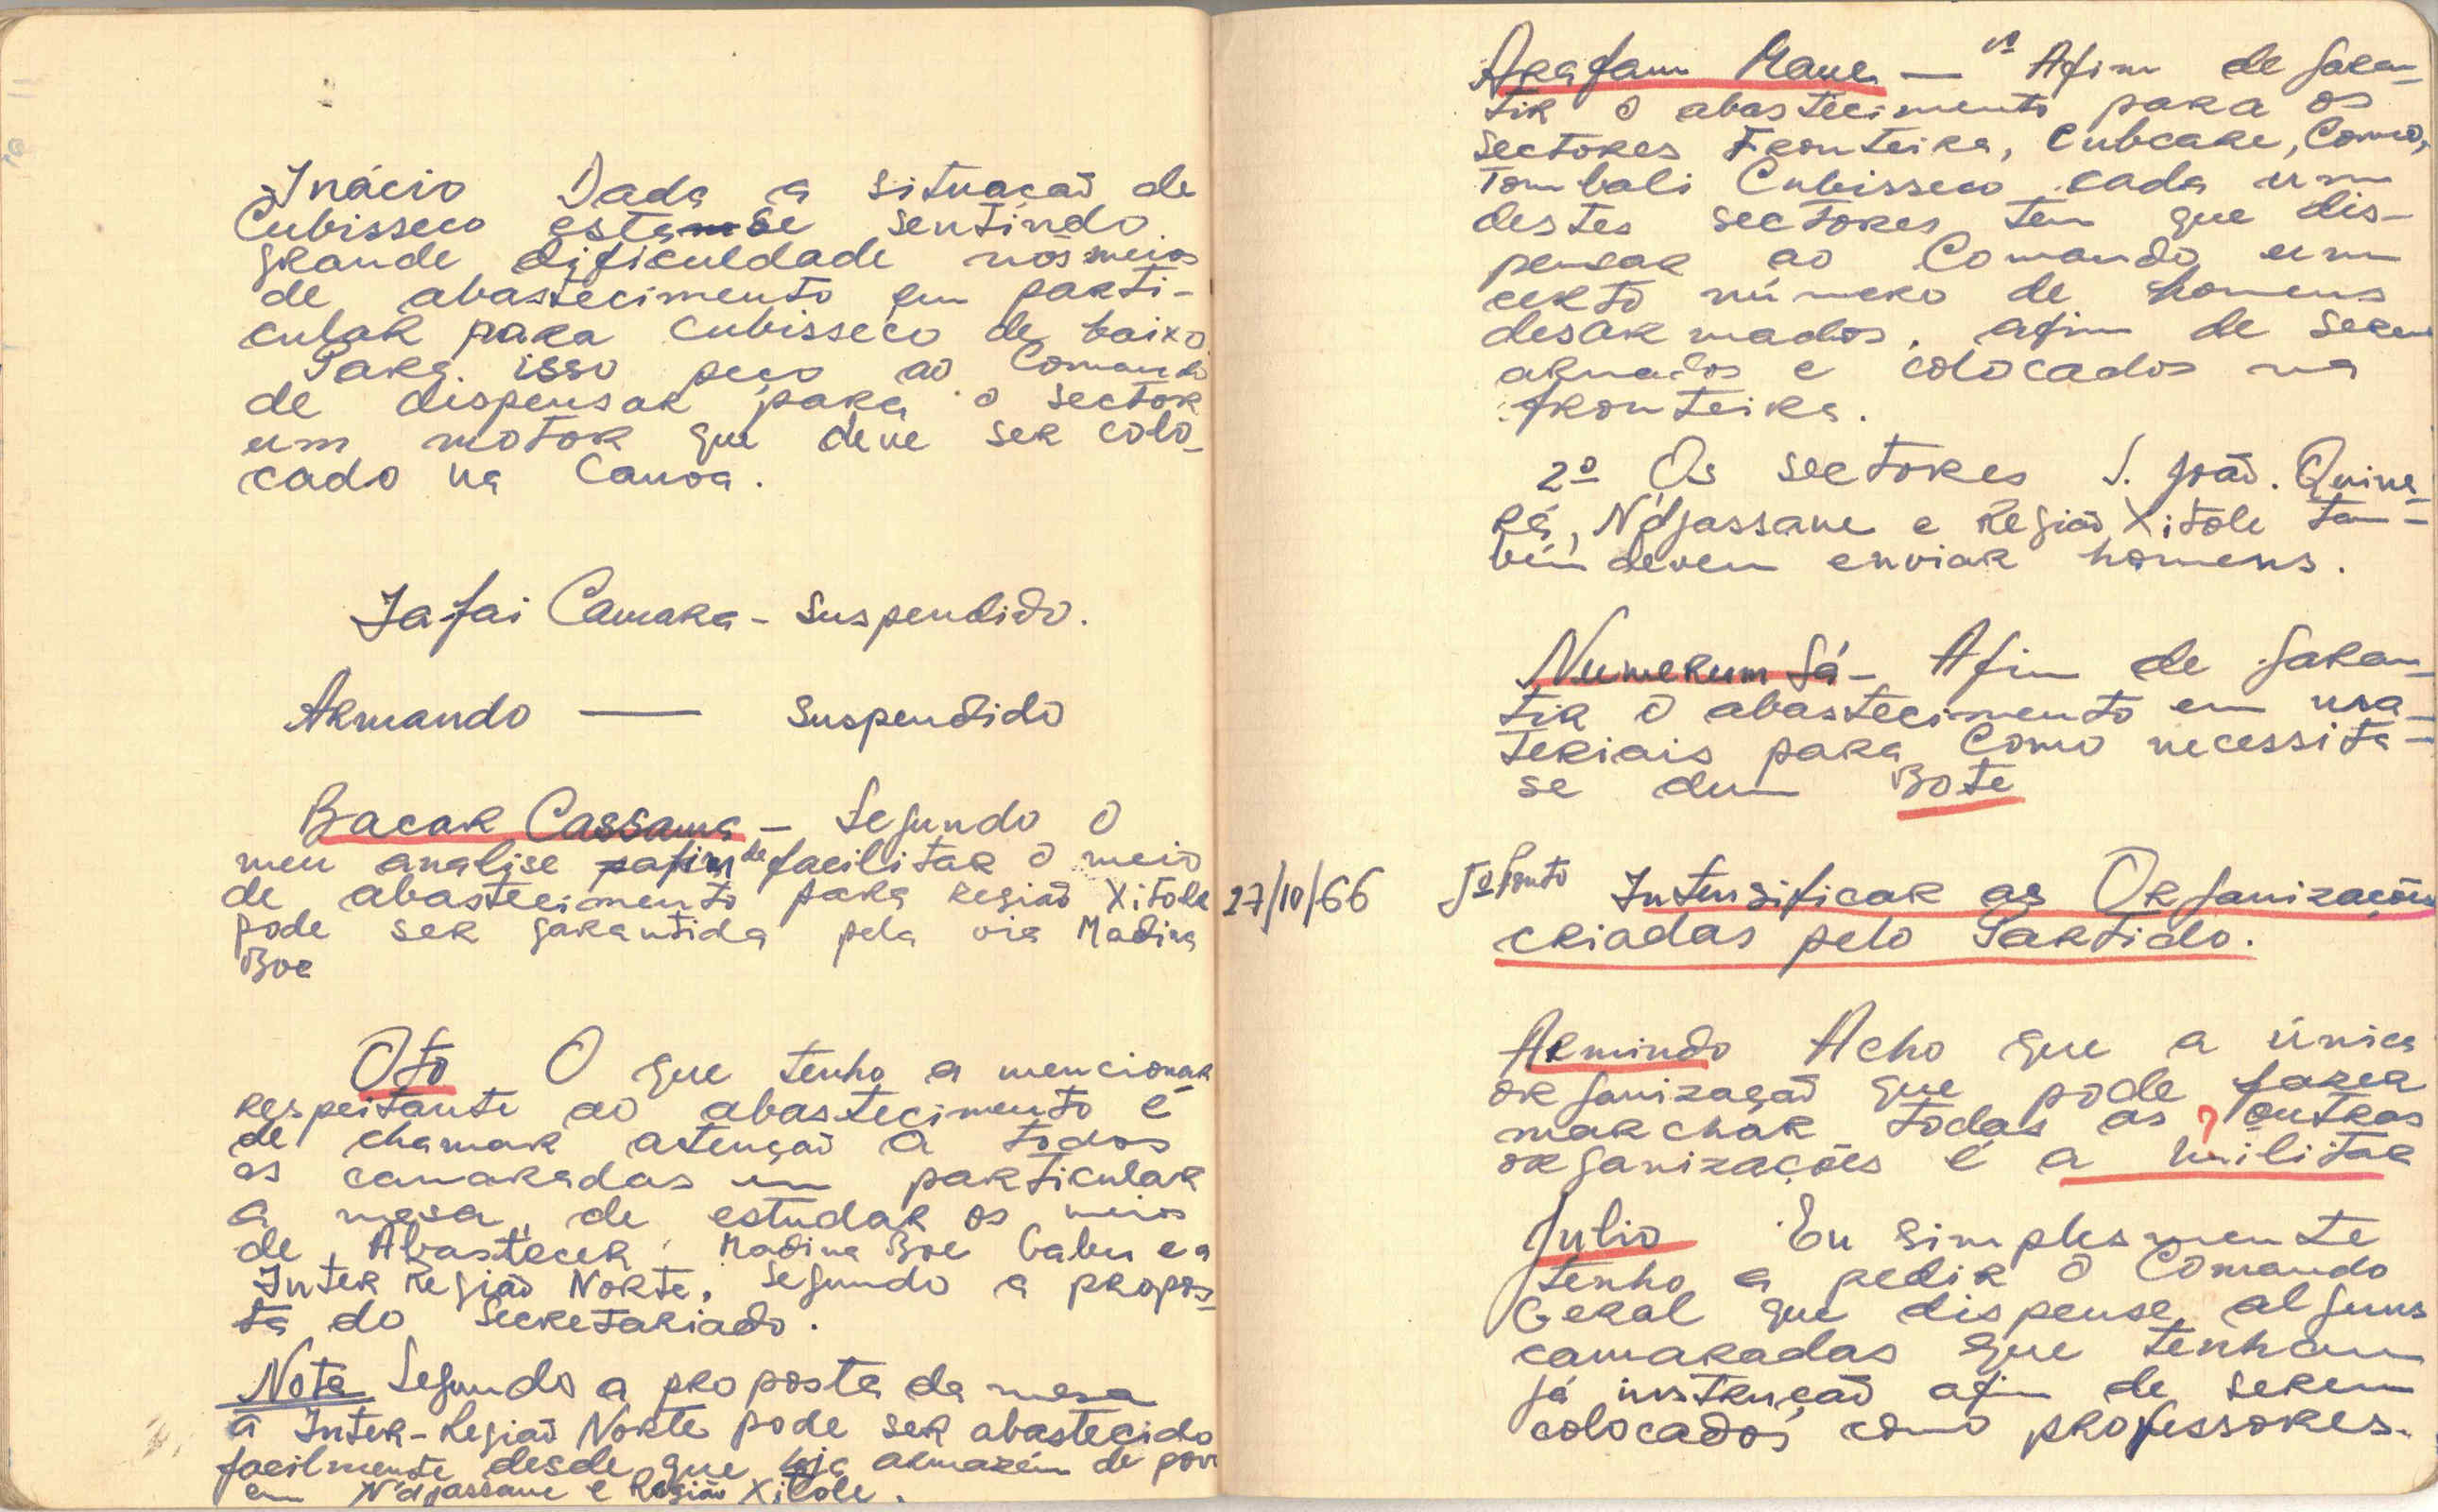 Inácio Dada a situação de
Cubisseco estamse sentindo
grande dificuldade nos meios
de abastecimento em parti-
cular para Cubisseco de baixo
Para isso peço ao Comando
de dispensar para o sector
um motor que deve ser colo-
cado na Canoa.
Iafai Camara - Suspendido.
Armando — Suspendido
Bacar Cassama - Segundo o
meu analise afim de facilitar o meio
de abastecimento para Região Xitole
pode ser garantida pela via Madina
Boe
Oto O que tenho a mencionar
respeitante ao abastecimento é
de chamar atenção a todos
os camaradas em particular
a mesa, de estudar os meios
de Abastecer Madina Boe Gabu e a
Inter Região Norte, segundo a propos-
ta do Secretariado.
Nota Segundo a proposta da mesa
a Inter-Região Norte pode ser abastecido
facilmente desde que haja armazém de
em N'djassane e Região Xitole.
Arafam Mane — Afim de garan-
tir o abastecimento para os
sectores Fronteira, Cubcare, Como,
Tombali Cubisseco cada um
destes sectores tem que dis-
pensar ao Comando um
certo número de homens
desarmados, afim de serem
armados e colocados na
fronteira.
2º Os sectores S. João. Quina-
rá, N'djassane e Região Xitole tam-
bém devem enviar homens.
Numerum Gá - Afim de garan-
tir o abastecimento em ma-
teriais para Como necessita-
se dum Bote
27/10/66 5º Ponto Intensificar as Organizações
criadas pelo Partido.
Armindo Acho que a única
organização que pode fazer
marchar todas as ? outras
organizações é a militar
Julio Eu simplesmente
tenho a pedir o Comando
Geral que dispense alguns
camaradas que tenham
já instrução afim de serem
colocados como professores.